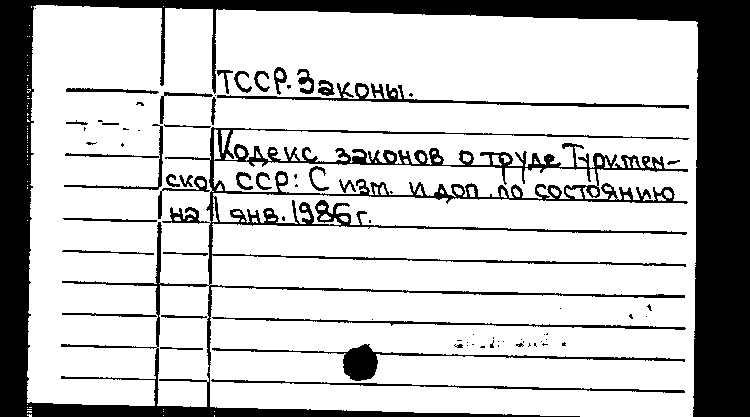 ТССР. Законы.
Кодекс законов о труде Туркмен-
ской ССР: С изм. и доп. по состоянию
на 1 янв. 1986 г.